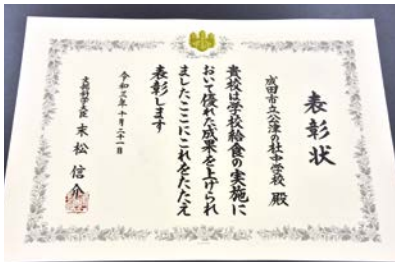 表彰状
成田市立公津の杜中学校 殿
貴校は学校給食の実施に
おいて優れた成果を上げられ
ましたここにこれをたたえ
表彰します
令和三年十月二十一日
文部科学大臣 末松 信介